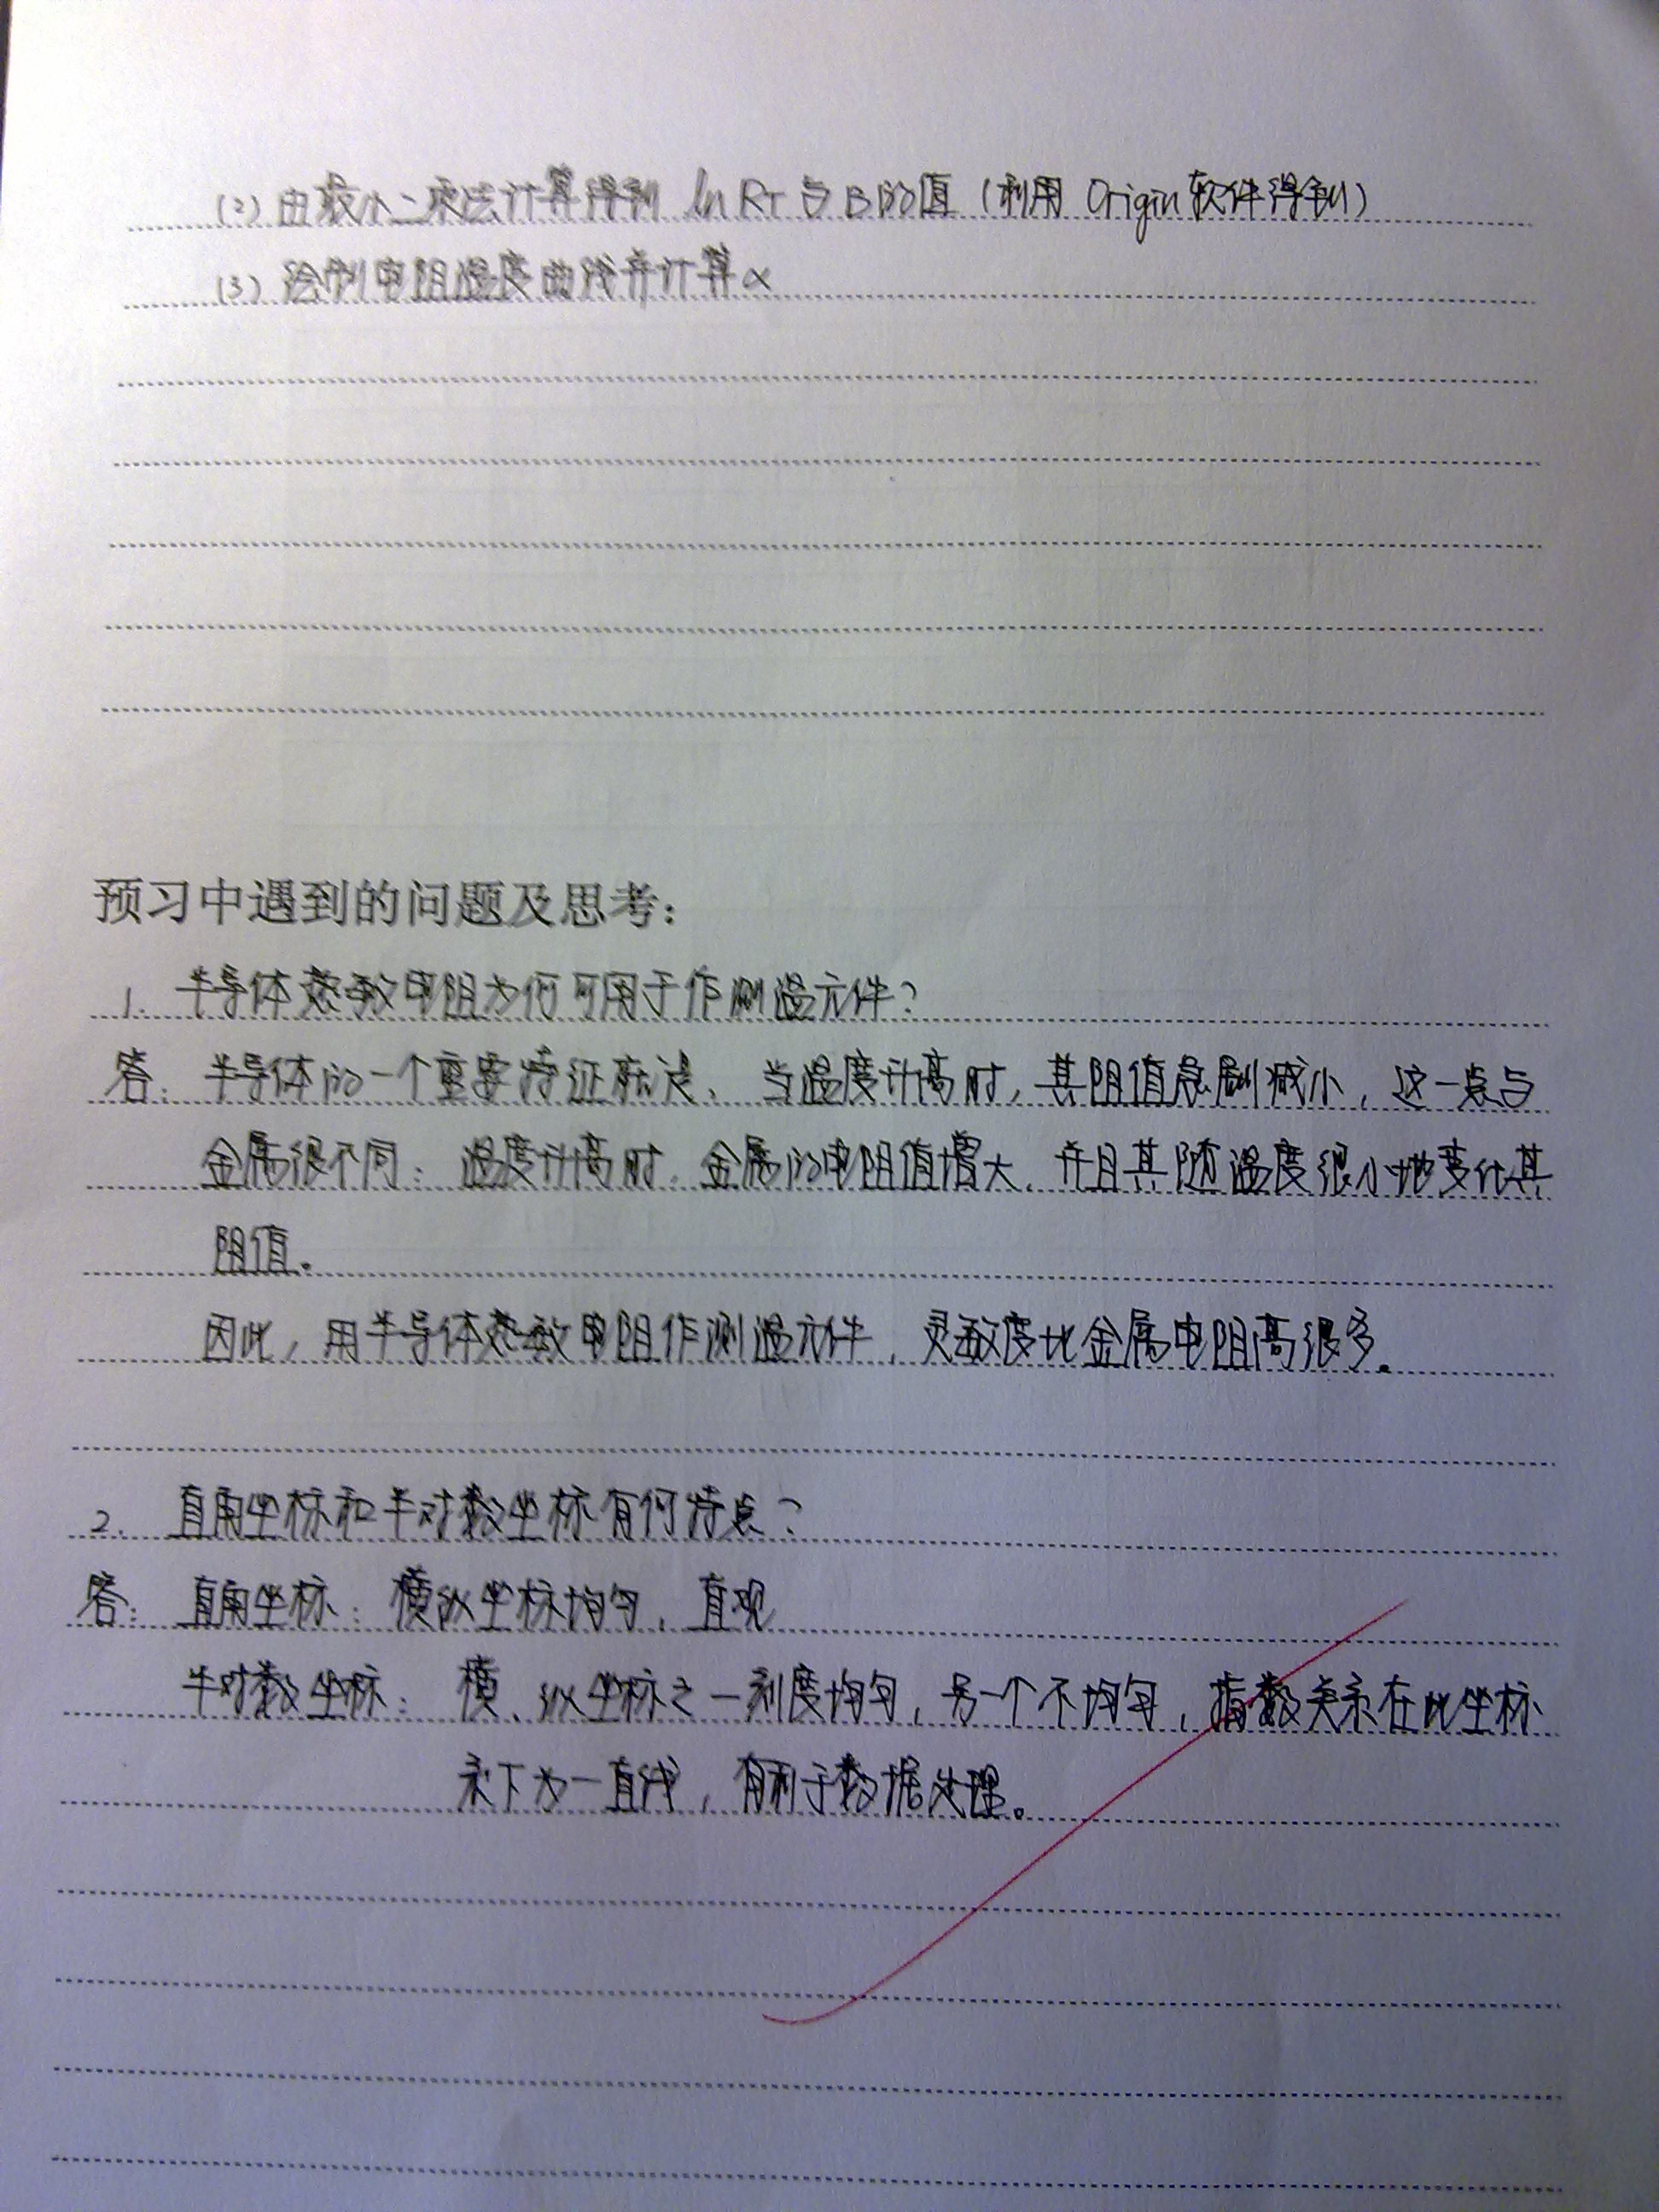 (2) 由最小二乘法计算得到 ln RT 与 B 的值 (利用 Origin 软件得到)
(3) 绘制电阻温度曲线并计算α
预习中遇到的问题及思考:
1. 半导体热敏电阻为何可用于作测温元件?
答: 半导体的一个重要特征就是、当温度升高时, 其阻值急剧减小, 这一点与
金属很不同: 温度升高时, 金属的电阻值增大, 并且其随温度很小地变化其
阻值。
因此, 用半导体热敏电阻作测温元件, 灵敏度比金属电阻高很多。
2. 直角坐标和半对数坐标有何特点?
答: 直角坐标: 横纵坐标均匀, 直观
半对数坐标: 横、纵坐标之一刻度均匀, 另一个不均匀, 指数关系在此坐标
系下为一直线, 有利于数据处理。